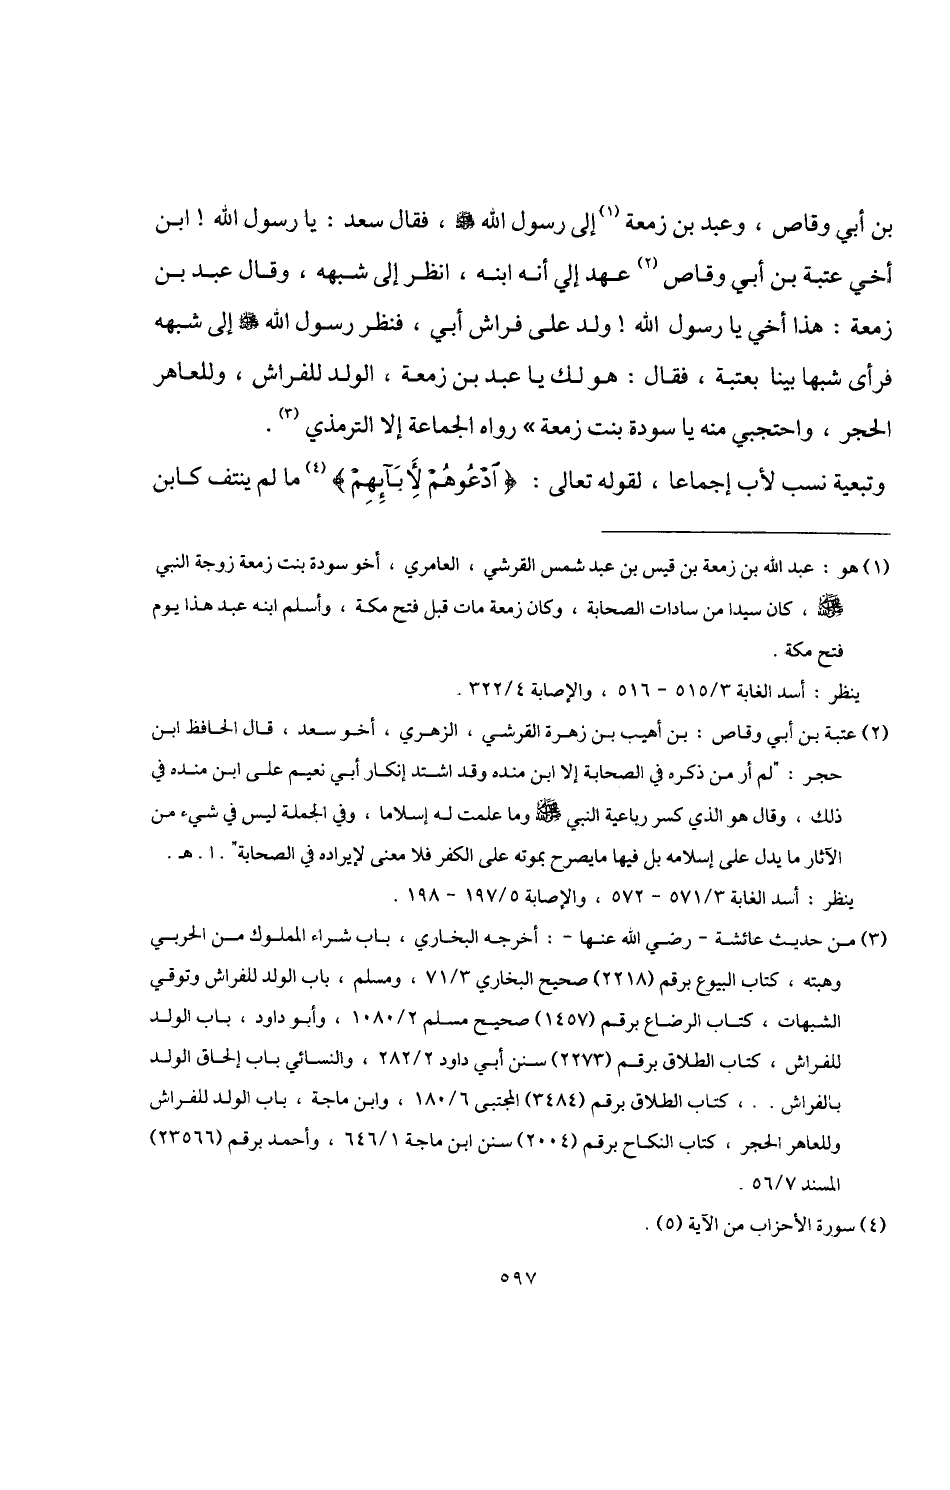 بن أبي وقاص ، وعبد بن زمعة (١) إلى رسول الله ﷺ ، فقال سعد : يا رسول الله ! ابن
أخي عتبة بن أبي وقاص (٢) عهد إلي أنه ابنه ، انظر إلى شبهه ، وقال عبد بن
زمعة : هذا أخي يا رسول الله ! ولد على فراش أبي ، فنظر رسول الله ﷺ إلى شبهه
فرأى شبها بينا بعتبة ، فقال : هو لك يا عبد بن زمعة ، الولد للفراش ، وللعاهر
الحجر ، واحتجبي منه يا سودة بنت زمعة » رواه الجماعة إلا الترمذي (٣) .
وتبعية نسب لأب إجماعا ، لقوله تعالى : ﴿ ٱدْعُوهُمْ لِأَبَآئِهِمْ ﴾ (٤) ما لم ينتف كابن
(١) هو : عبد الله بن زمعة بن قيس بن عبد شمس القرشي ، العامري ، أخو سودة بنت زمعة زوجة النبي
ﷺ ، كان سيدا من سادات الصحابة ، وكان زمعة مات قبل فتح مكة ، وأسلم ابنه عبد هذا يوم
فتح مكة .
ينظر : أسد الغابة ٥١٥/٣ - ٥١٦ ، والإصابة ٣٢٢/٤ .
(٢) عتبة بن أبي وقاص : بن أهيب بن زهرة القرشي ، الزهري ، أخو سعد ، قال الحافظ ابن
حجر : "لم أر من ذكره في الصحابة إلا ابن منده وقد اشتد إنكار أبي نعيم على ابن منده في
ذلك ، وقال هو الذي كسر رباعية النبي ﷺ وما علمت له إسلاما ، وفي الجملة ليس في شيء من
الآثار ما يدل على إسلامه بل فيها مايصرح بموته على الكفر فلا معنى لإيراده في الصحابة" . ا . هـ .
ينظر : أسد الغابة ٥٧١/٣ - ٥٧٢ ، والإصابة ١٩٧/٥ - ١٩٨ .
(٣) من حديث عائشة - رضي الله عنها - : أخرجه البخاري ، باب شراء المملوك من الحربي
وهبته ، كتاب البيوع برقم (٢٢١٨) صحيح البخاري ٧١/٣ ، ومسلم ، باب الولد للفراش وتوقي
الشبهات ، كتاب الرضاع برقم (١٤٥٧) صحيح مسلم ١٠٨٠/٢ ، وأبو داود ، باب الولد
للفراش ، كتاب الطلاق برقم (٢٢٧٣) سنن أبي داود ٢٨٢/٢ ، والنسائي باب إلحاق الولد
بالفراش . . ، كتاب الطلاق برقم (٣٤٨٤) المجتبى ١٨٠/٦ ، وابن ماجة ، باب الولد للفراش
وللعاهر الحجر ، كتاب النكاح برقم (٢٠٠٤) سنن ابن ماجة ٦٤٦/١ ، وأحمد برقم (٢٣٥٦٦)
المسند ٥٦/٧ .
(٤) سورة الأحزاب من الآية (٥) .
٥٩٧